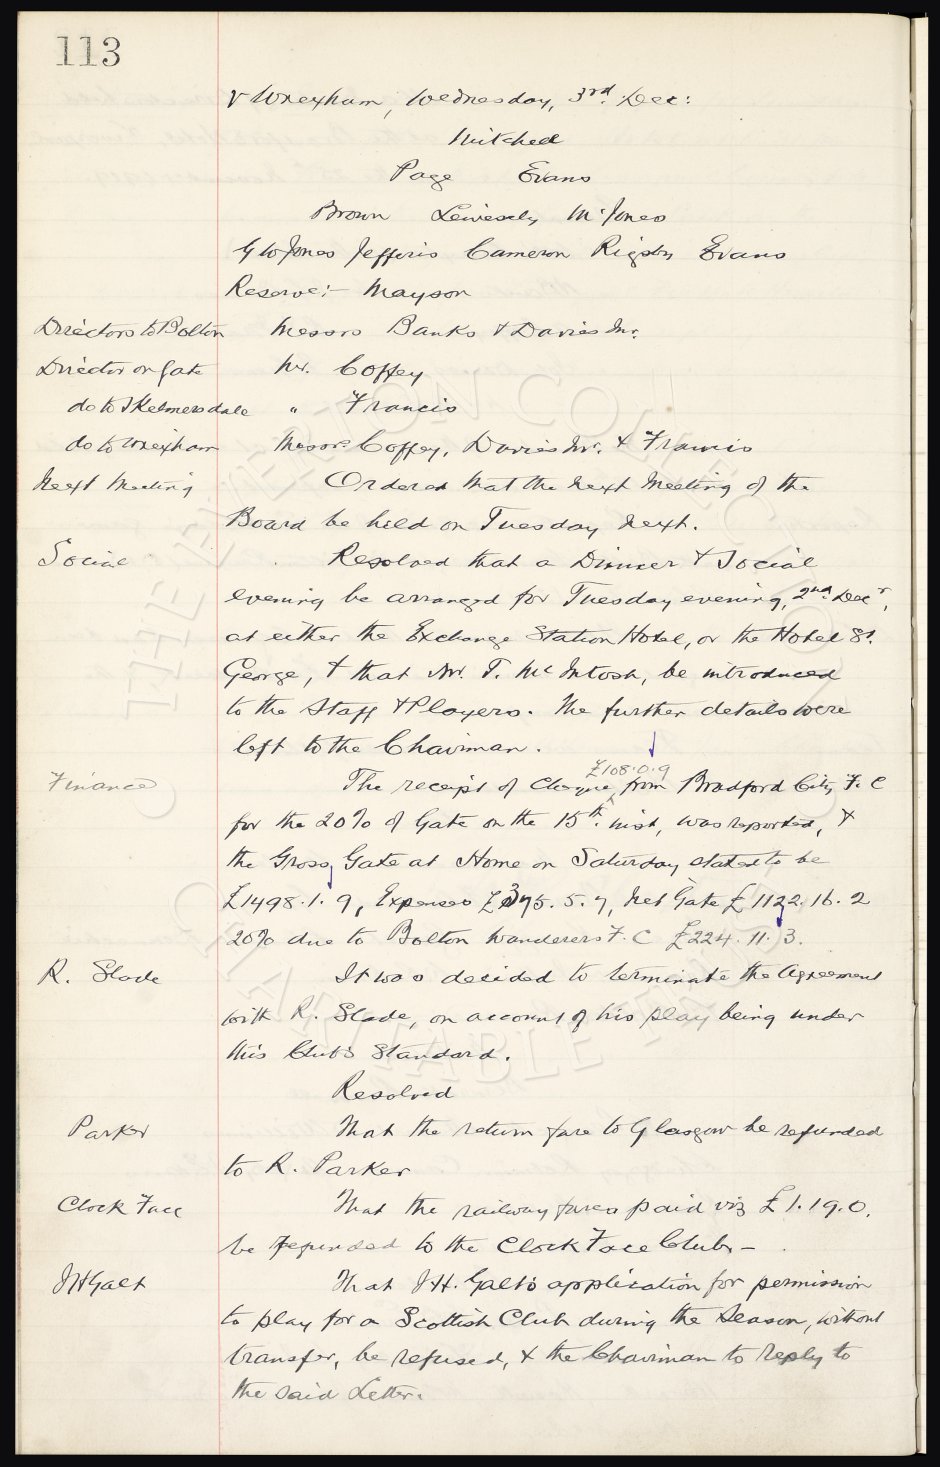 113
v Wrexham, Wednesday, 3rd Dec:
Mitchell
Page Evans
Brown Lievesely M'Jones
G W Jones Jefferis Cameron Rigsby Evans
Reserve:- Mayson
Directors to Bolton Messrs Banks & Davies Jnr.
Director on Gate Mr. Coffey
do to Skelmersdale " Francis
do to Wrexham Messrs Coffey, Davies Jnr. & Francis
Next Meeting Ordered that the next Meeting of the
Board be held on Tuesday next.
Social Resolved that a Dinner & Social
evening be arranged for Tuesday evening, 2nd Decr,
at either the Exchange Station Hotel, or the Hotel St.
George, & that Mr. T. McIntosh, be introduced
to the Staff & Players. The further details were
left to the Chairman.
£108.0.9
Finance The receipt of Cheque from Bradford City F.C
for the 20% of Gate on the 15th inst, was reported, &
the Gross Gate at Home on Saturday stated to be
£1498.1.9, Expenses £375.5.7, Net Gate £1122.16.2
20% due to Bolton Wanderers F.C £224.11.3.
R. Slade It was decided to terminate the Agreement
with R. Slade, on account of his play being under
this Club's Standard.
Resolved
Parker That the return fare to Glasgow be refunded
to R. Parker
Clock Face That the railway fares paid viz £1.19.0.
be refunded to the Clock Face Club -
J H Galt That J.H. Galt's application for permission
to play for a Scottish Club during the Season, without
transfer, be refused, & the Chairman to reply to
the said Letter.